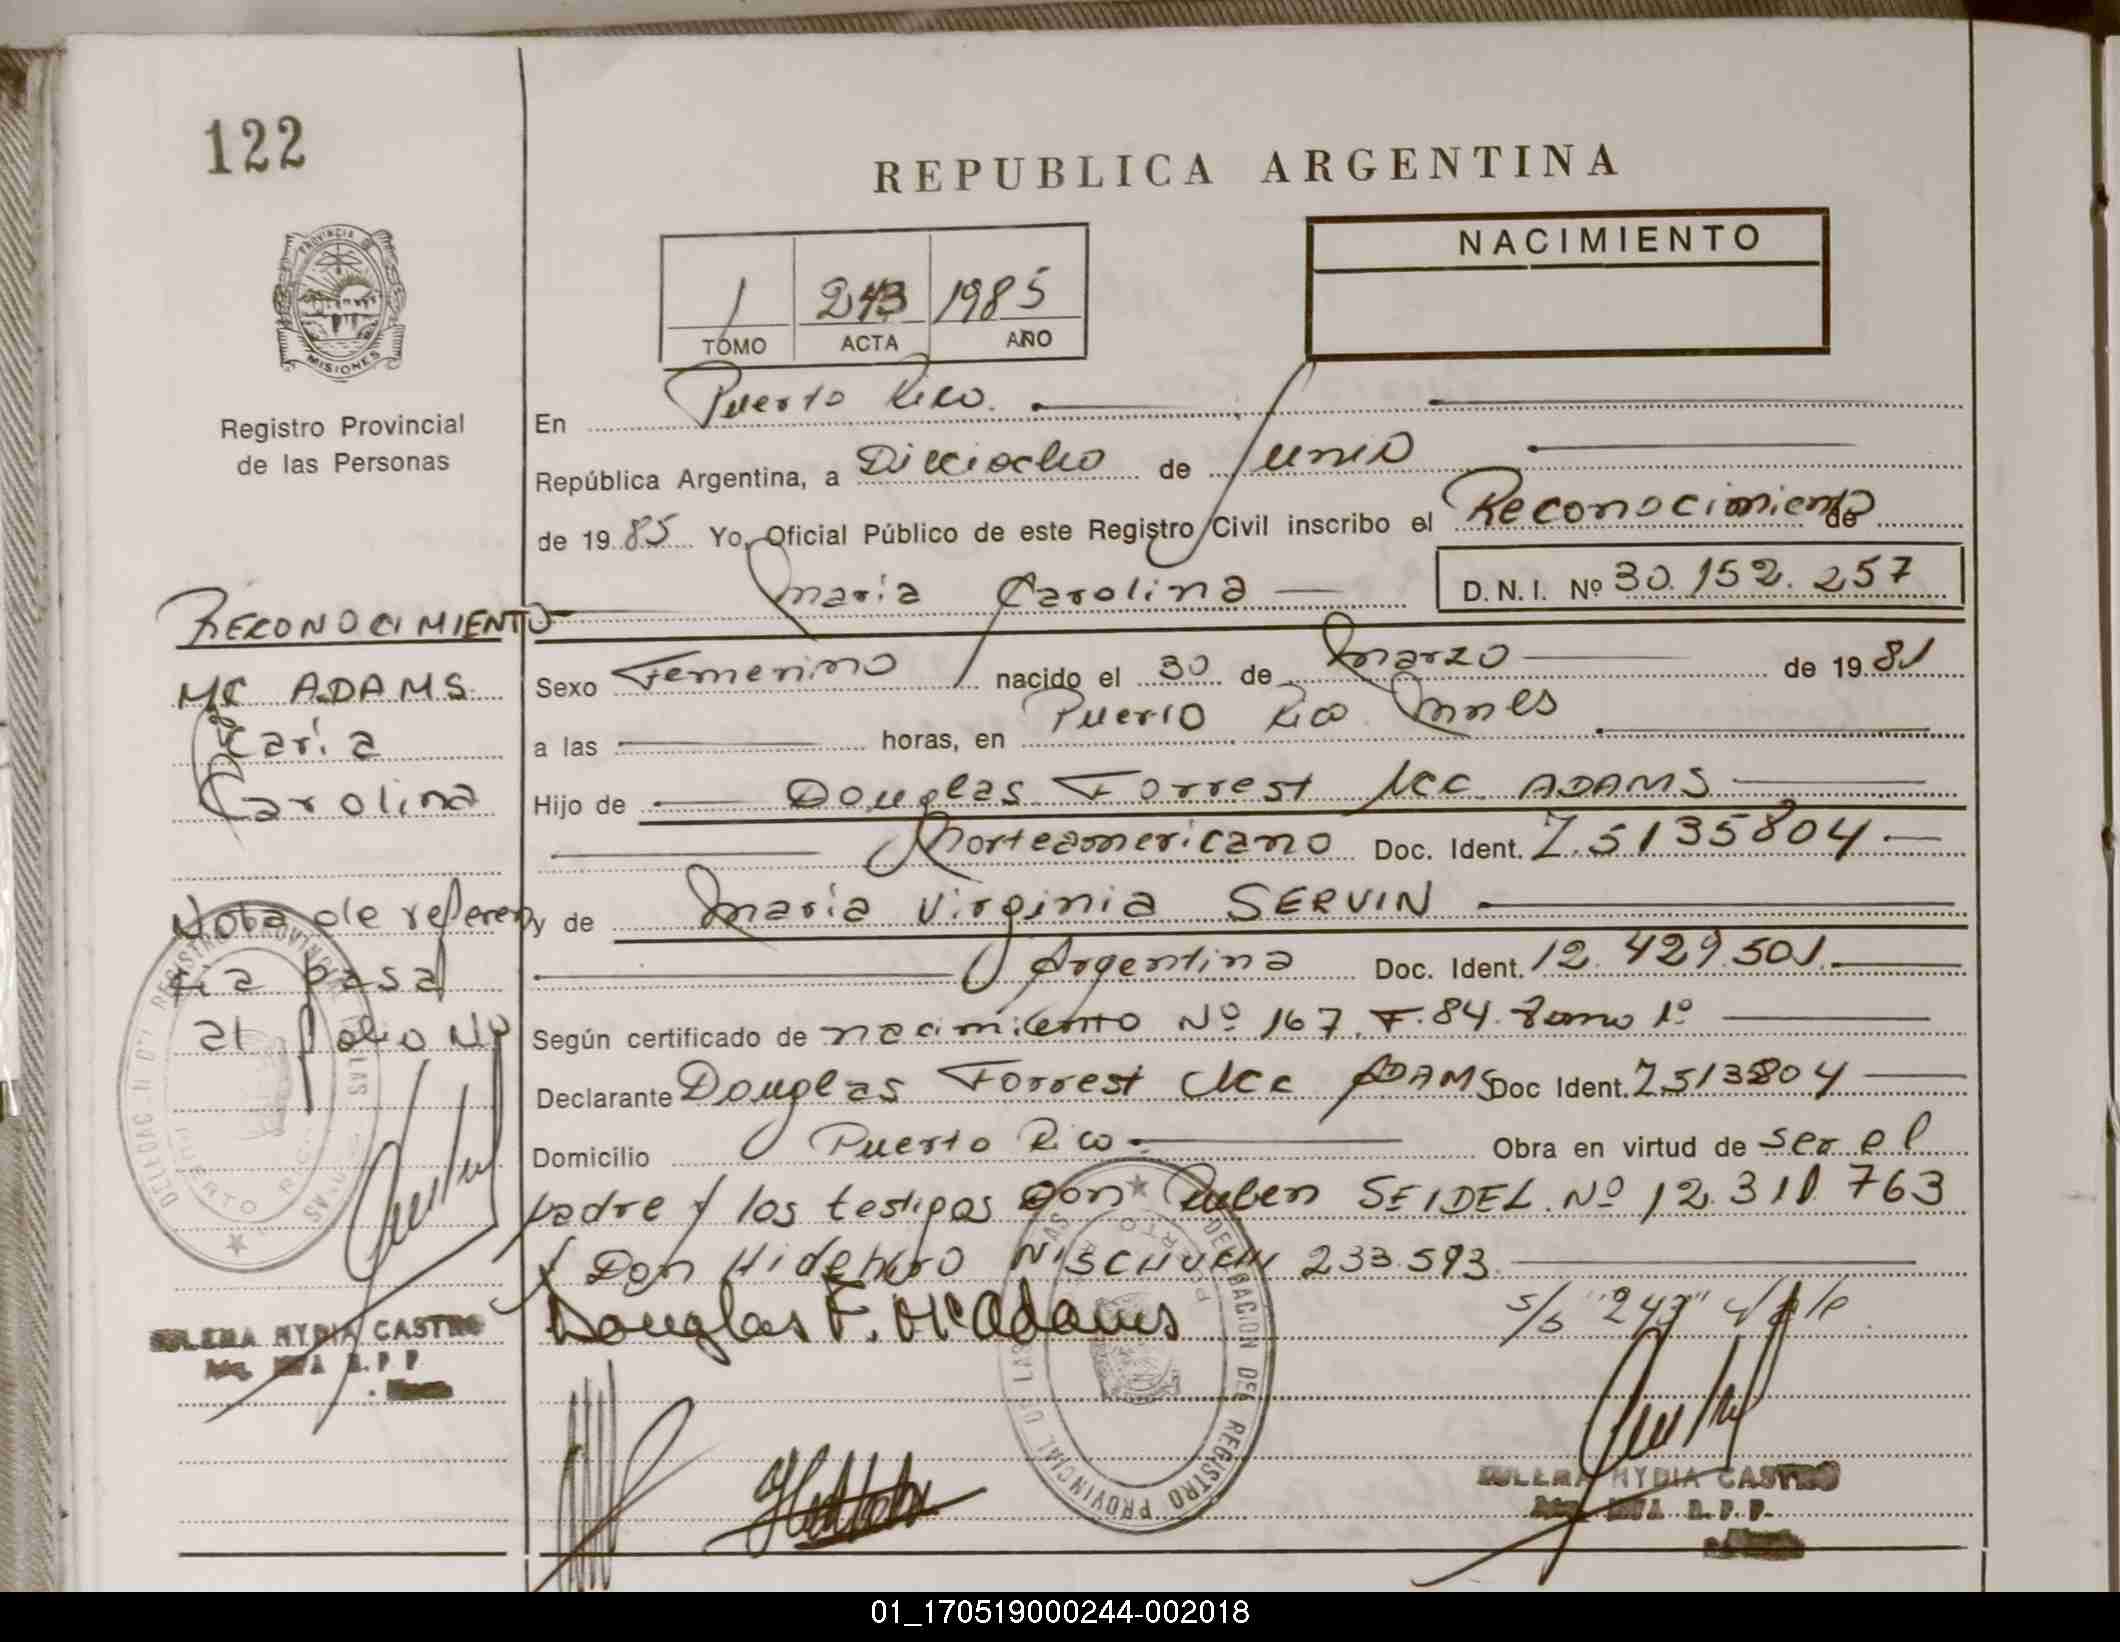 122
REPUBLICA ARGENTINA
NACIMIENTO
PROVINCIA DE
MISIONES
1 243 1985
TOMO ACTA AÑO
Registro Provincial
de las Personas
En Puerto Rico.
República Argentina, a Dieciocho de Junio
de 1985 Yo, Oficial Público de este Registro Civil inscribo el Reconocimiento de
Maria Carolina D.N.I. Nº 30.152.257
RECONOCIMIENTO
Mc ADAMS
Maria
Carolina
Nota de referen
cia pasa
al folio Nº
Sexo Femenino nacido el 30 de Marzo de 1981
a las horas, en Puerto Rico Mnes
Hijo de Douglas Forrest Mc ADAMS
Norteamericano Doc. Ident. Z.5135804
y de Maria Virginia SERVIN
Argentina Doc. Ident. 12.429.501.
Según certificado de nacimiento Nº 167. F.84. Tomo 1º
Declarante Douglas Forrest Mc ADAMS Doc Ident. Z513804
Domicilio Puerto Rico. Obra en virtud de ser el
padre y los testigos Don Ruben SEIDEL. Nº 12.311.763
y Don 233.593
Douglas F. McAdams
s/b "243" vale
ZULEMA NYDIA CASTRO
R.P.P.
DELEGACION DEL REGISTRO PROVINCIAL DE LAS
PUERTO RICO
ZULEMA NYDIA CASTRO
R.P.P.
01_170519000244-002018